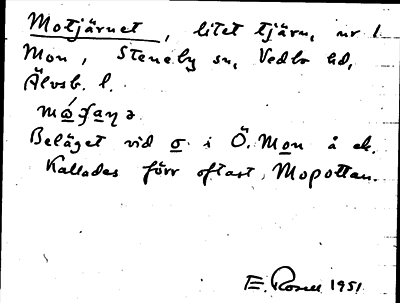 Motjärnet, litet tjärn, nr 1
Mon, Steneby sn, Vedbo hd,
Älvsb. l.
Beläget vid o. i Ö. Mon å ek.
Kallades förr oftast Mopottan.
E. Rosell 1951